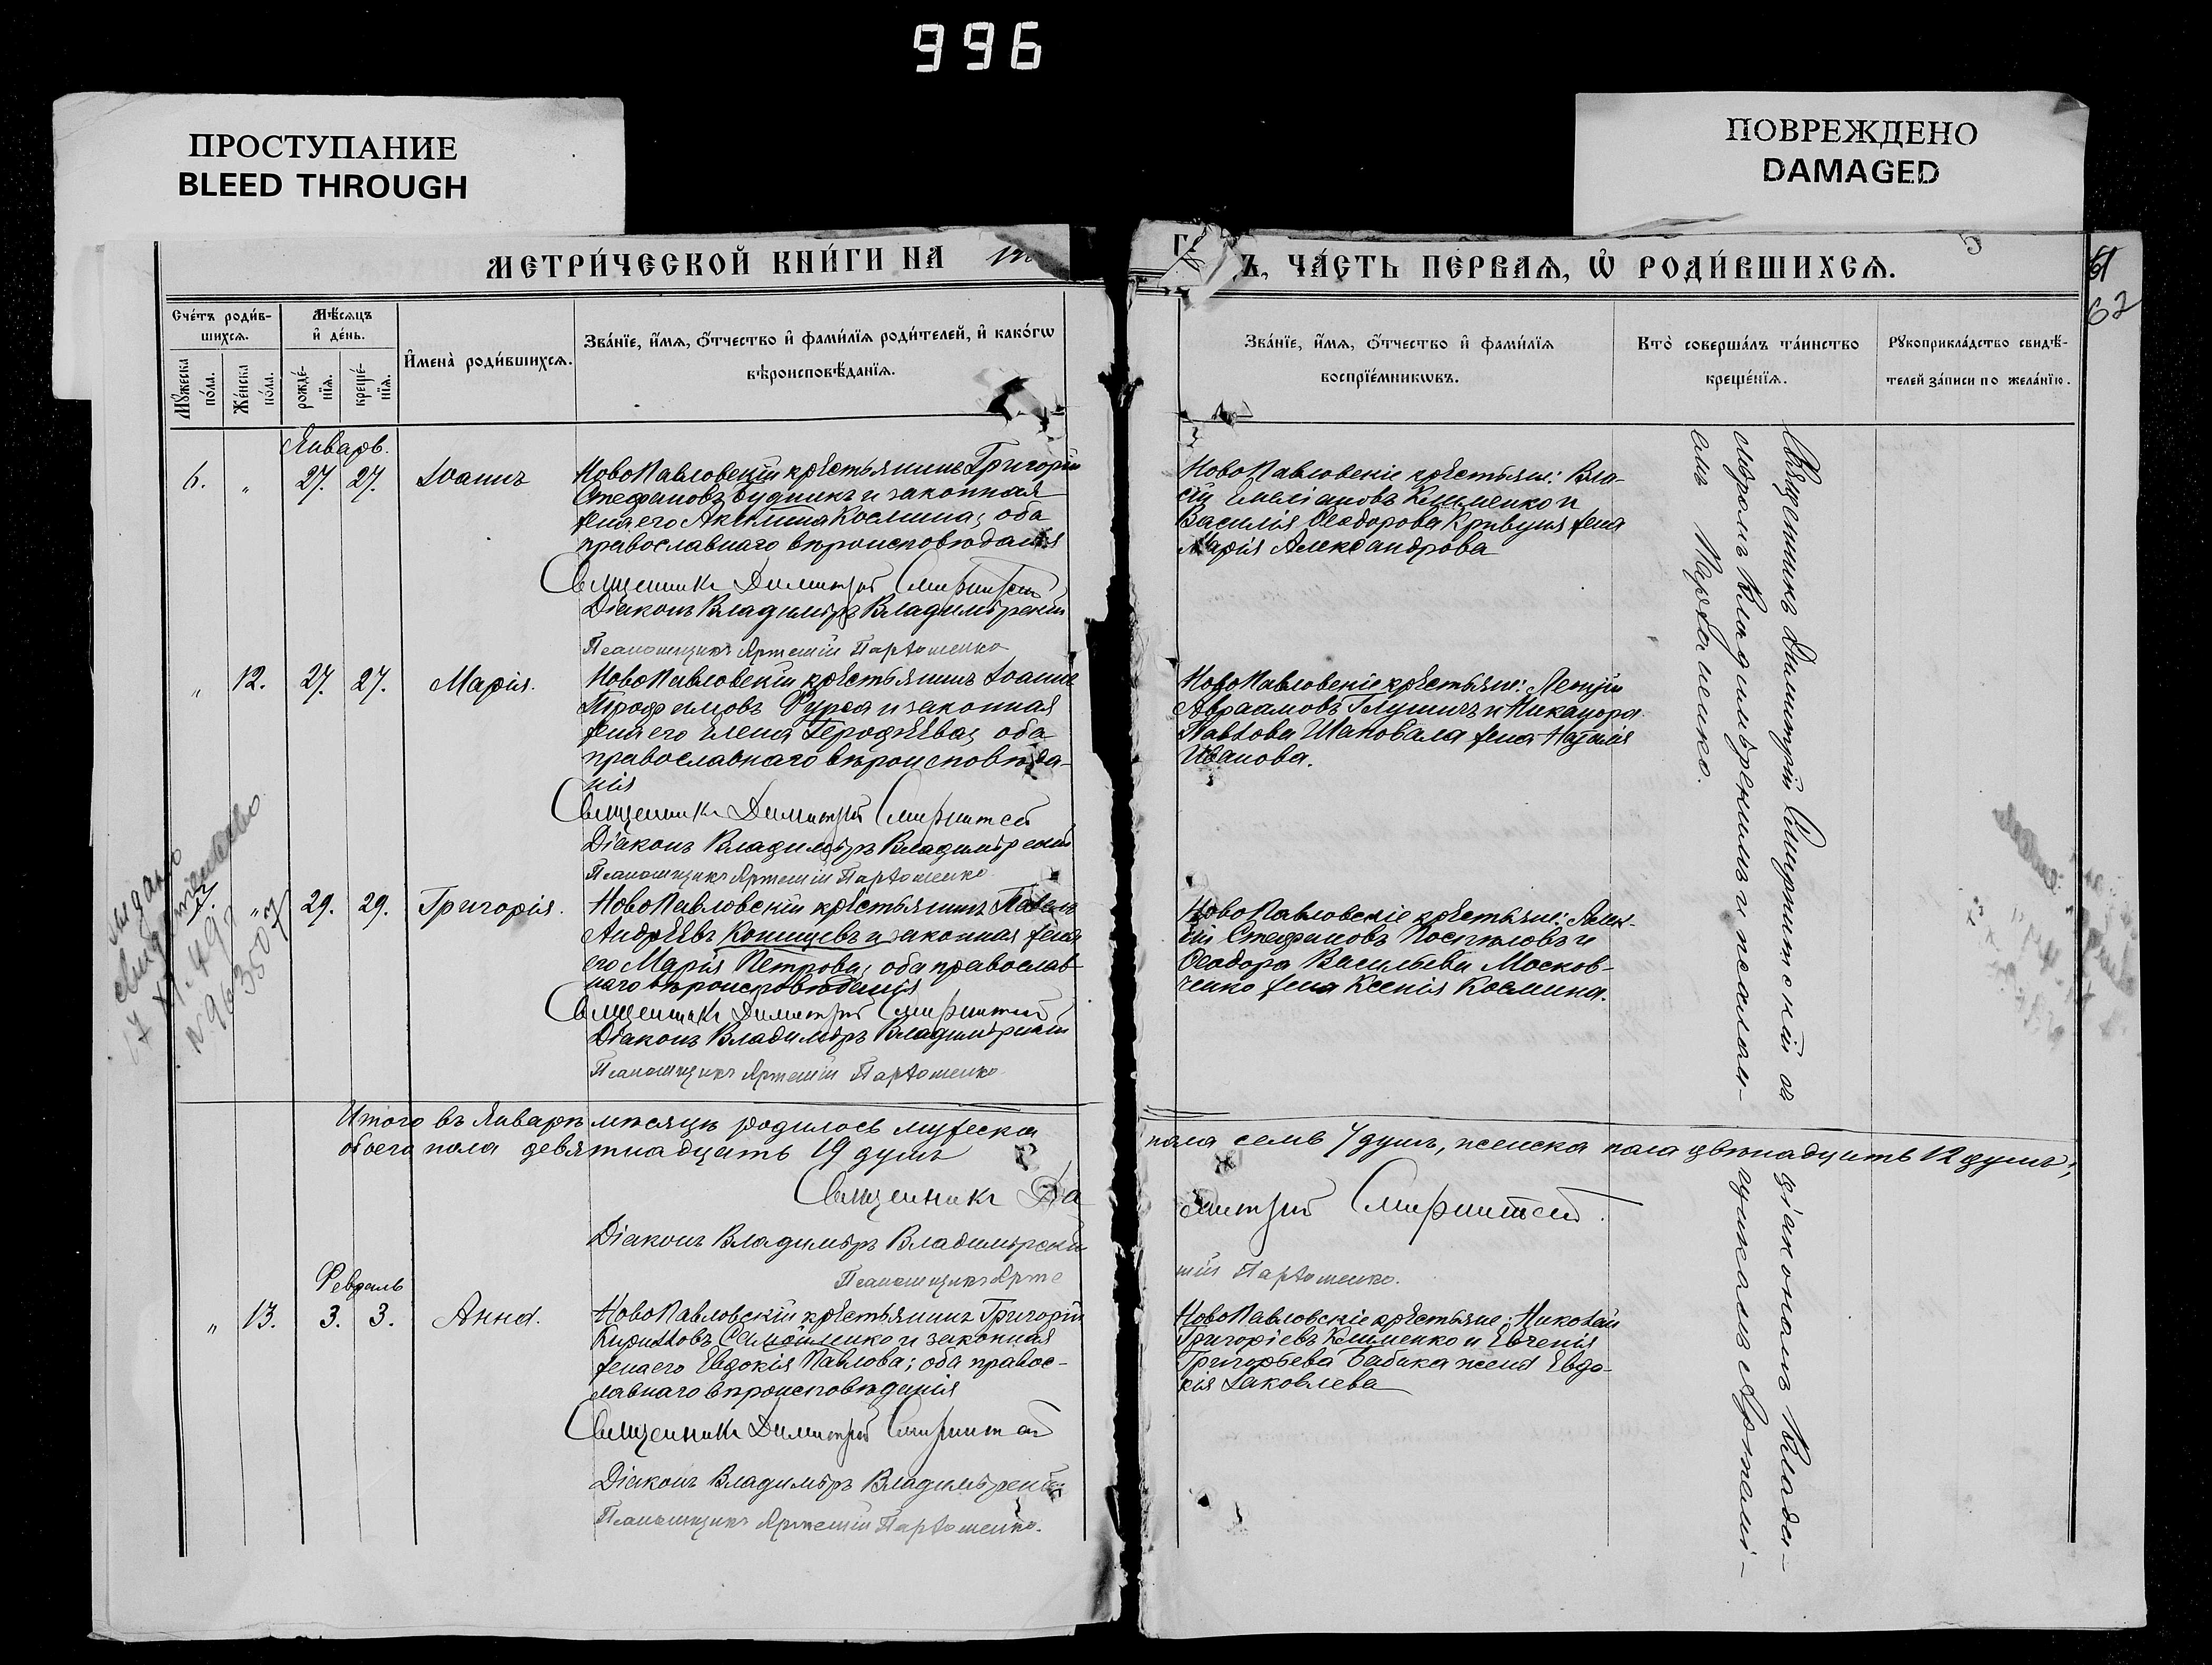 996
ПРОСТУПАНИЕ
BLEED THROUGH
ПОВРЕЖДЕНО
DAMAGED
МЕТРИ́ЧЕСКОЙ КНИ́ГИ НА
Ъ, ЧА́СТЬ ПЕ́РВАѦ, Ѡ҆ РОДИ́ВШИХСѦ.
51
62
Сче́тъ роди́в-
шихсѧ.
Мѣ́сѧцъ
и҆ де́нь.
Мꙋ́жеска по́ла.
Же́нска по́ла.
рожде́-нїѧ.
креще́-нїѧ.
И҆мена̀ роди́вшихсѧ.
Зва́нїе, и҆́мѧ, ѻ҆́тчество и҆ фами́лїѧ роди́телей, и҆ како́гѡ
вѣроисповѣ́данїѧ.
Зва́нїе, и҆́мѧ, ѻ҆́тчество и҆ фами́лїѧ
воспрїе́мникѡвъ.
Кто̀ соверша́лъ та́инство
креще́нїѧ.
Рꙋкоприкла́дство свидѣ́-
телей за́писи по жела́нїю.
Январь.
6. " 27. 27. Іоаннъ
НовоПавловскій крестьянинъ Григорій
Стефановъ Будникъ и законная
жена его Акилина Космина; оба
православнаго вѣроисповѣданія
Священникъ Димитрій Смирнитскій
Діаконъ Владиміръ Владимірскій
Псаломщикъ Артемій Пархоменко
НовоПавловскіе крестьяне: Вла-
сій Емеліановъ Клименко и
Василія Ѳеодорова Кривуця жена
Марія Александрова
" 12. 27. 27. Марія.
НовоПавловскій крестьянинъ Іоаннъ
Трофимовъ Фурса и законная
жена его Елена Герофѣева; оба
православнаго вѣроисповѣда-
нія
Священникъ Димитрій Смирнитскій
Діаконъ Владиміръ Владимірскій
Псаломщикъ Артемій Пархоменко
НовоПавловскіе крестьяне: Леонтій
Авраамовъ Глушичъ и Никанора
Павлова Шаповала жена Наталія
Иванова.
7. " 29. 29. Григорія.
НовоПавловскій крестьянинъ Павелъ
Андреевъ Конищевъ и законная жена
его Марія Петрова; оба православ-
наго вѣроисповѣданія
Священникъ Димитрій Смирнитскій
Діаконъ Владиміръ Владимірскій
Псаломщикъ Артемій Пархоменко
НовоПавловскіе крестьяне: Алек-
сій Стефановъ Поспѣловъ и
Ѳеодора Васильева Москов-
ченко жена Ксенія Космина.
выдано
свидетельство
Священникъ Димитрій Смирнитскій съ
діакономъ Влади-
міромъ Владимірскимъ и псалом-
щикомъ Артемі-
емъ Пархоменко.
Итого въ Январѣ мѣсяцѣ родилось мужеска
пола семь 7 душъ, женска пола двѣнадцать 12 душъ;
обоего пола девятнадцать 19 душъ
Священникъ Ди
митрій Смирнитскій.
Діаконъ Владиміръ Владимірскій
Псаломщикъ Арте
мій Пархоменко.
Февраль
" 13. 3. 3. Анна.
НовоПавловскій крестьянинъ Григорій
Кирилловъ Самойленко и законная
жена его Евдокія Павлова; оба правос-
лавнаго вѣроисповѣданія
Священникъ Димитрій Смирнитскій
Діаконъ Владиміръ Владимірскій
Псаломщикъ Артемій Пархоменко.
НовоПавловскіе крестьяне: Николай
Григоріевъ Клименко и Евгенія
Григорьева Бабака жена Евдо-
кія Іаковлева